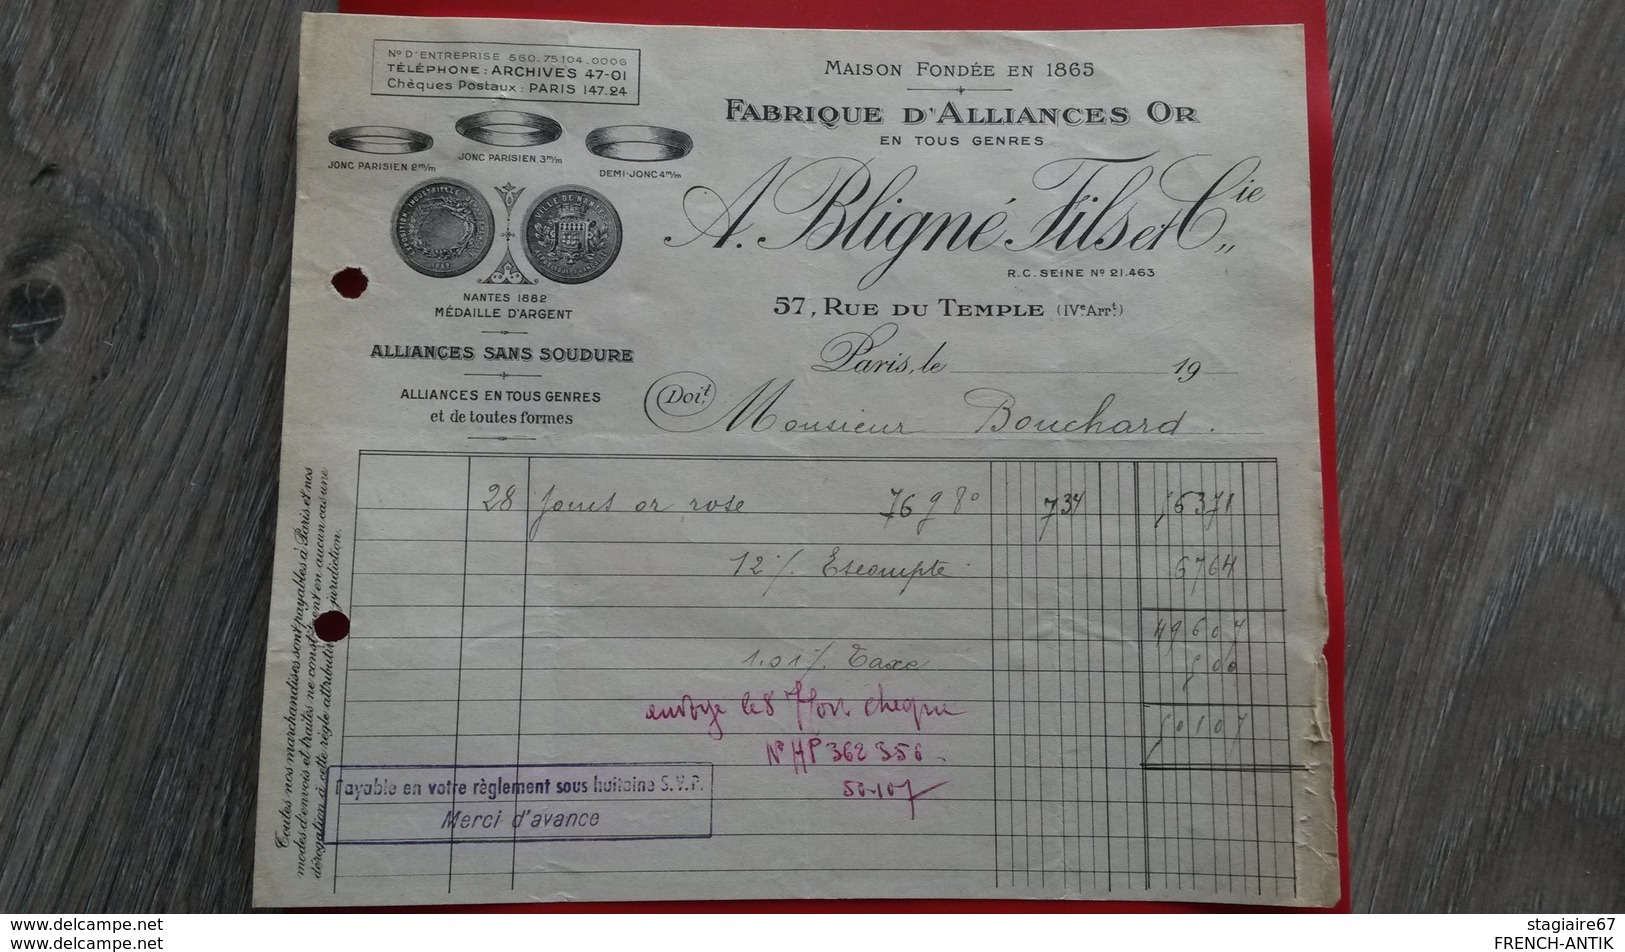 No D'ENTREPRISE 560.75.104.0006
TÉLÉPHONE : ARCHIVES 47-01
Chèques Postaux : PARIS 147.24
JONC PARISIEN 2m/m
JONC PARISIEN 3m/m
DEMI-JONC 4m/m
VILLE DE NANTES
NANTES 1882
MÉDAILLE D'ARGENT
ALLIANCES SANS SOUDURE
ALLIANCES EN TOUS GENRES
et de toutes formes
MAISON FONDÉE EN 1865
FABRIQUE D'ALLIANCES OR
EN TOUS GENRES
A. Bligné Fils et Cie
R.C. SEINE No 21.463
57, RUE DU TEMPLE (IVe Arrt)
Paris, le 19
Doit
Monsieur Bouchard.
28 or rose 76 g 80 7 34 56371
12 % Escompte 6764
49607
1.01 % Taxe 500
50107
envoyé le 8 cheque
No HP 362 356
50.107
Payable en votre règlement sous huitaine S.V.P.
Merci d'avance
Toutes nos marchandises sont payables à Paris et nos
modes d'envois et traites ne constituent en aucun cas une
dérogation à cette règle attributive juridiction.
www.delcampe.net
www.delcampe.net
stagiaire67
FRENCH-ANTIK